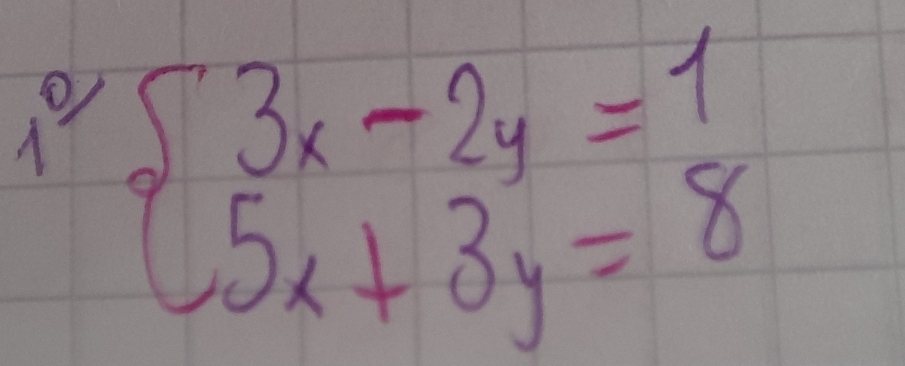 1º/ { 3x - 2y = 1
5x + 3y = 8